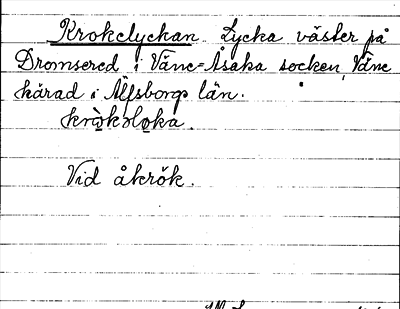 Krokelyckan Lycka väster på
Dromsered i Väne-Åsaka socken, Väne
härad i Älfsborgs län.
Vid åkrök.